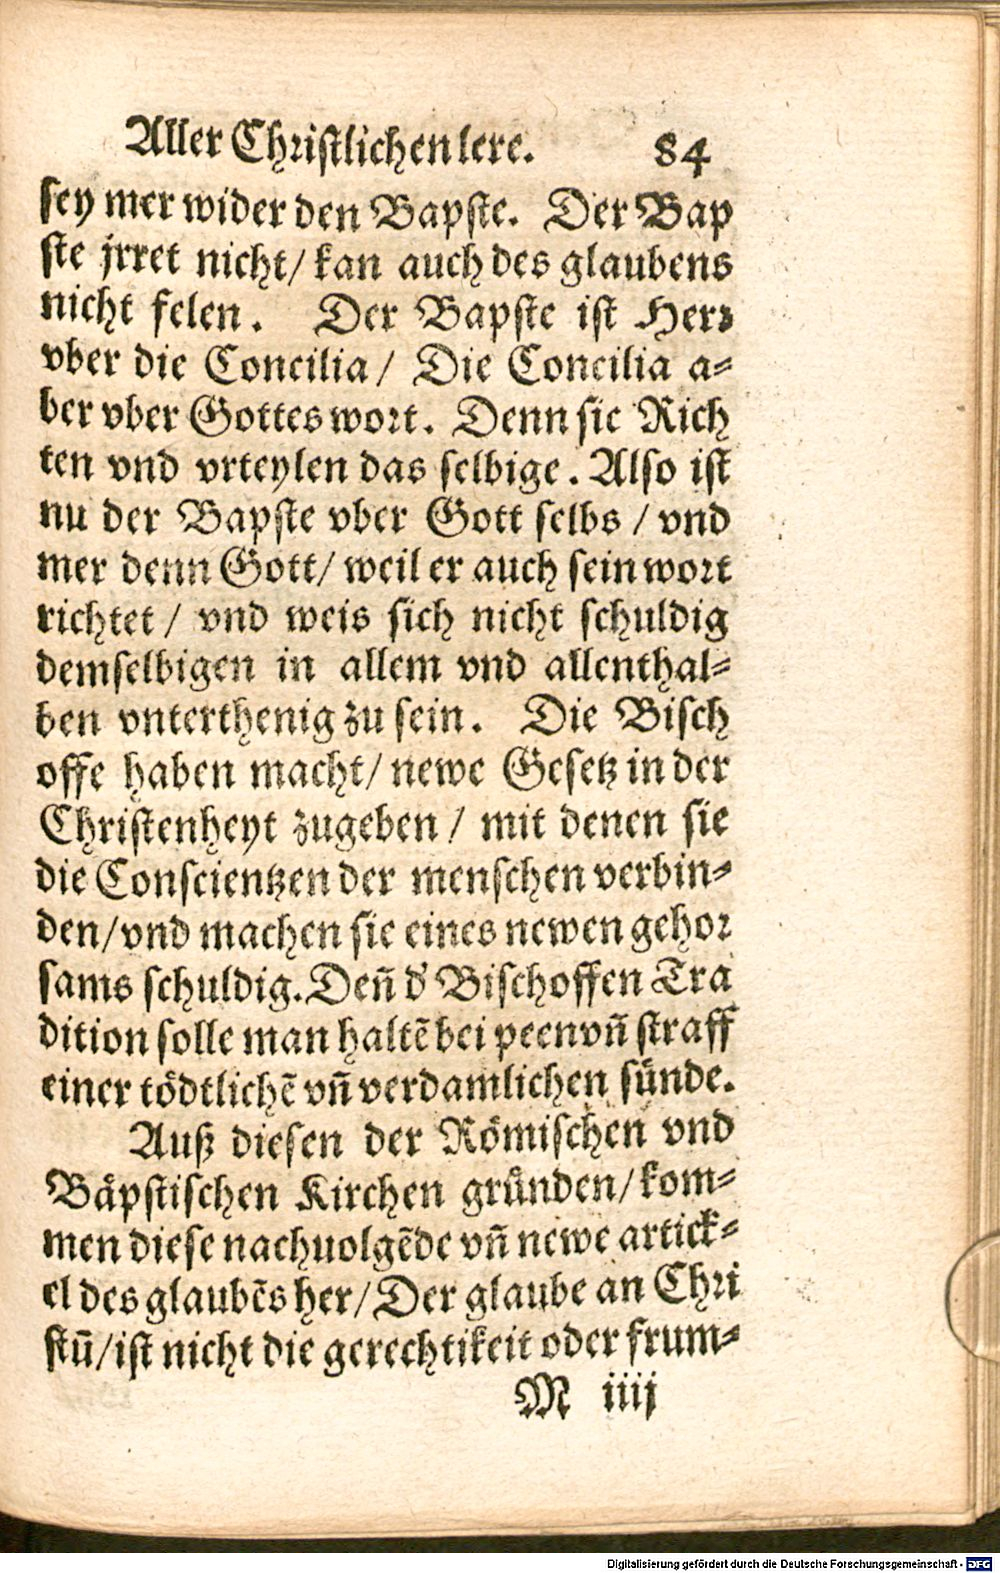 Aller Christlichen lere. 84
sey mer wider den Bapste. Der Bap
ste jrret nicht/ kan auch des glaubens
nicht felen. Der Bapste ist Herr
vber die Concilia/ Die Concilia a=
ber vber Gottes wort. Denn sie Rich
ten vnd vrteylen das selbige. Also ist
nu der Bapste vber Gott selbs / vnd
mer denn Gott/ weil er auch sein wort
richtet / vnd weis sich nicht schuldig
demselbigen in allem vnd allenthal=
ben vnterthenig zu sein. Die Bisch
offe haben macht/ newe Gesetz in der
Christenheyt zugeben / mit denen sie
die Conscientzen der menschen verbin=
den/vnd machen sie eines newen gehor
sams schuldig. Deñ d' Bischoffen Tra
dition solle man haltē bei peen vñ straff
einer tödtlichē vñ verdamlichen sünde.
Auß diesen der Römischen vnd
Bäpstischen Kirchen gründen/ kom=
men diese nachuolgēde vñ newe artick=
el des glaubēs her/ Der glaube an Chri
stū/ist nicht die gerechtikeit oder frum=
M iiij
Digitalisierung gefördert durch die Deutsche Forschungsgemeinschaft - DFG